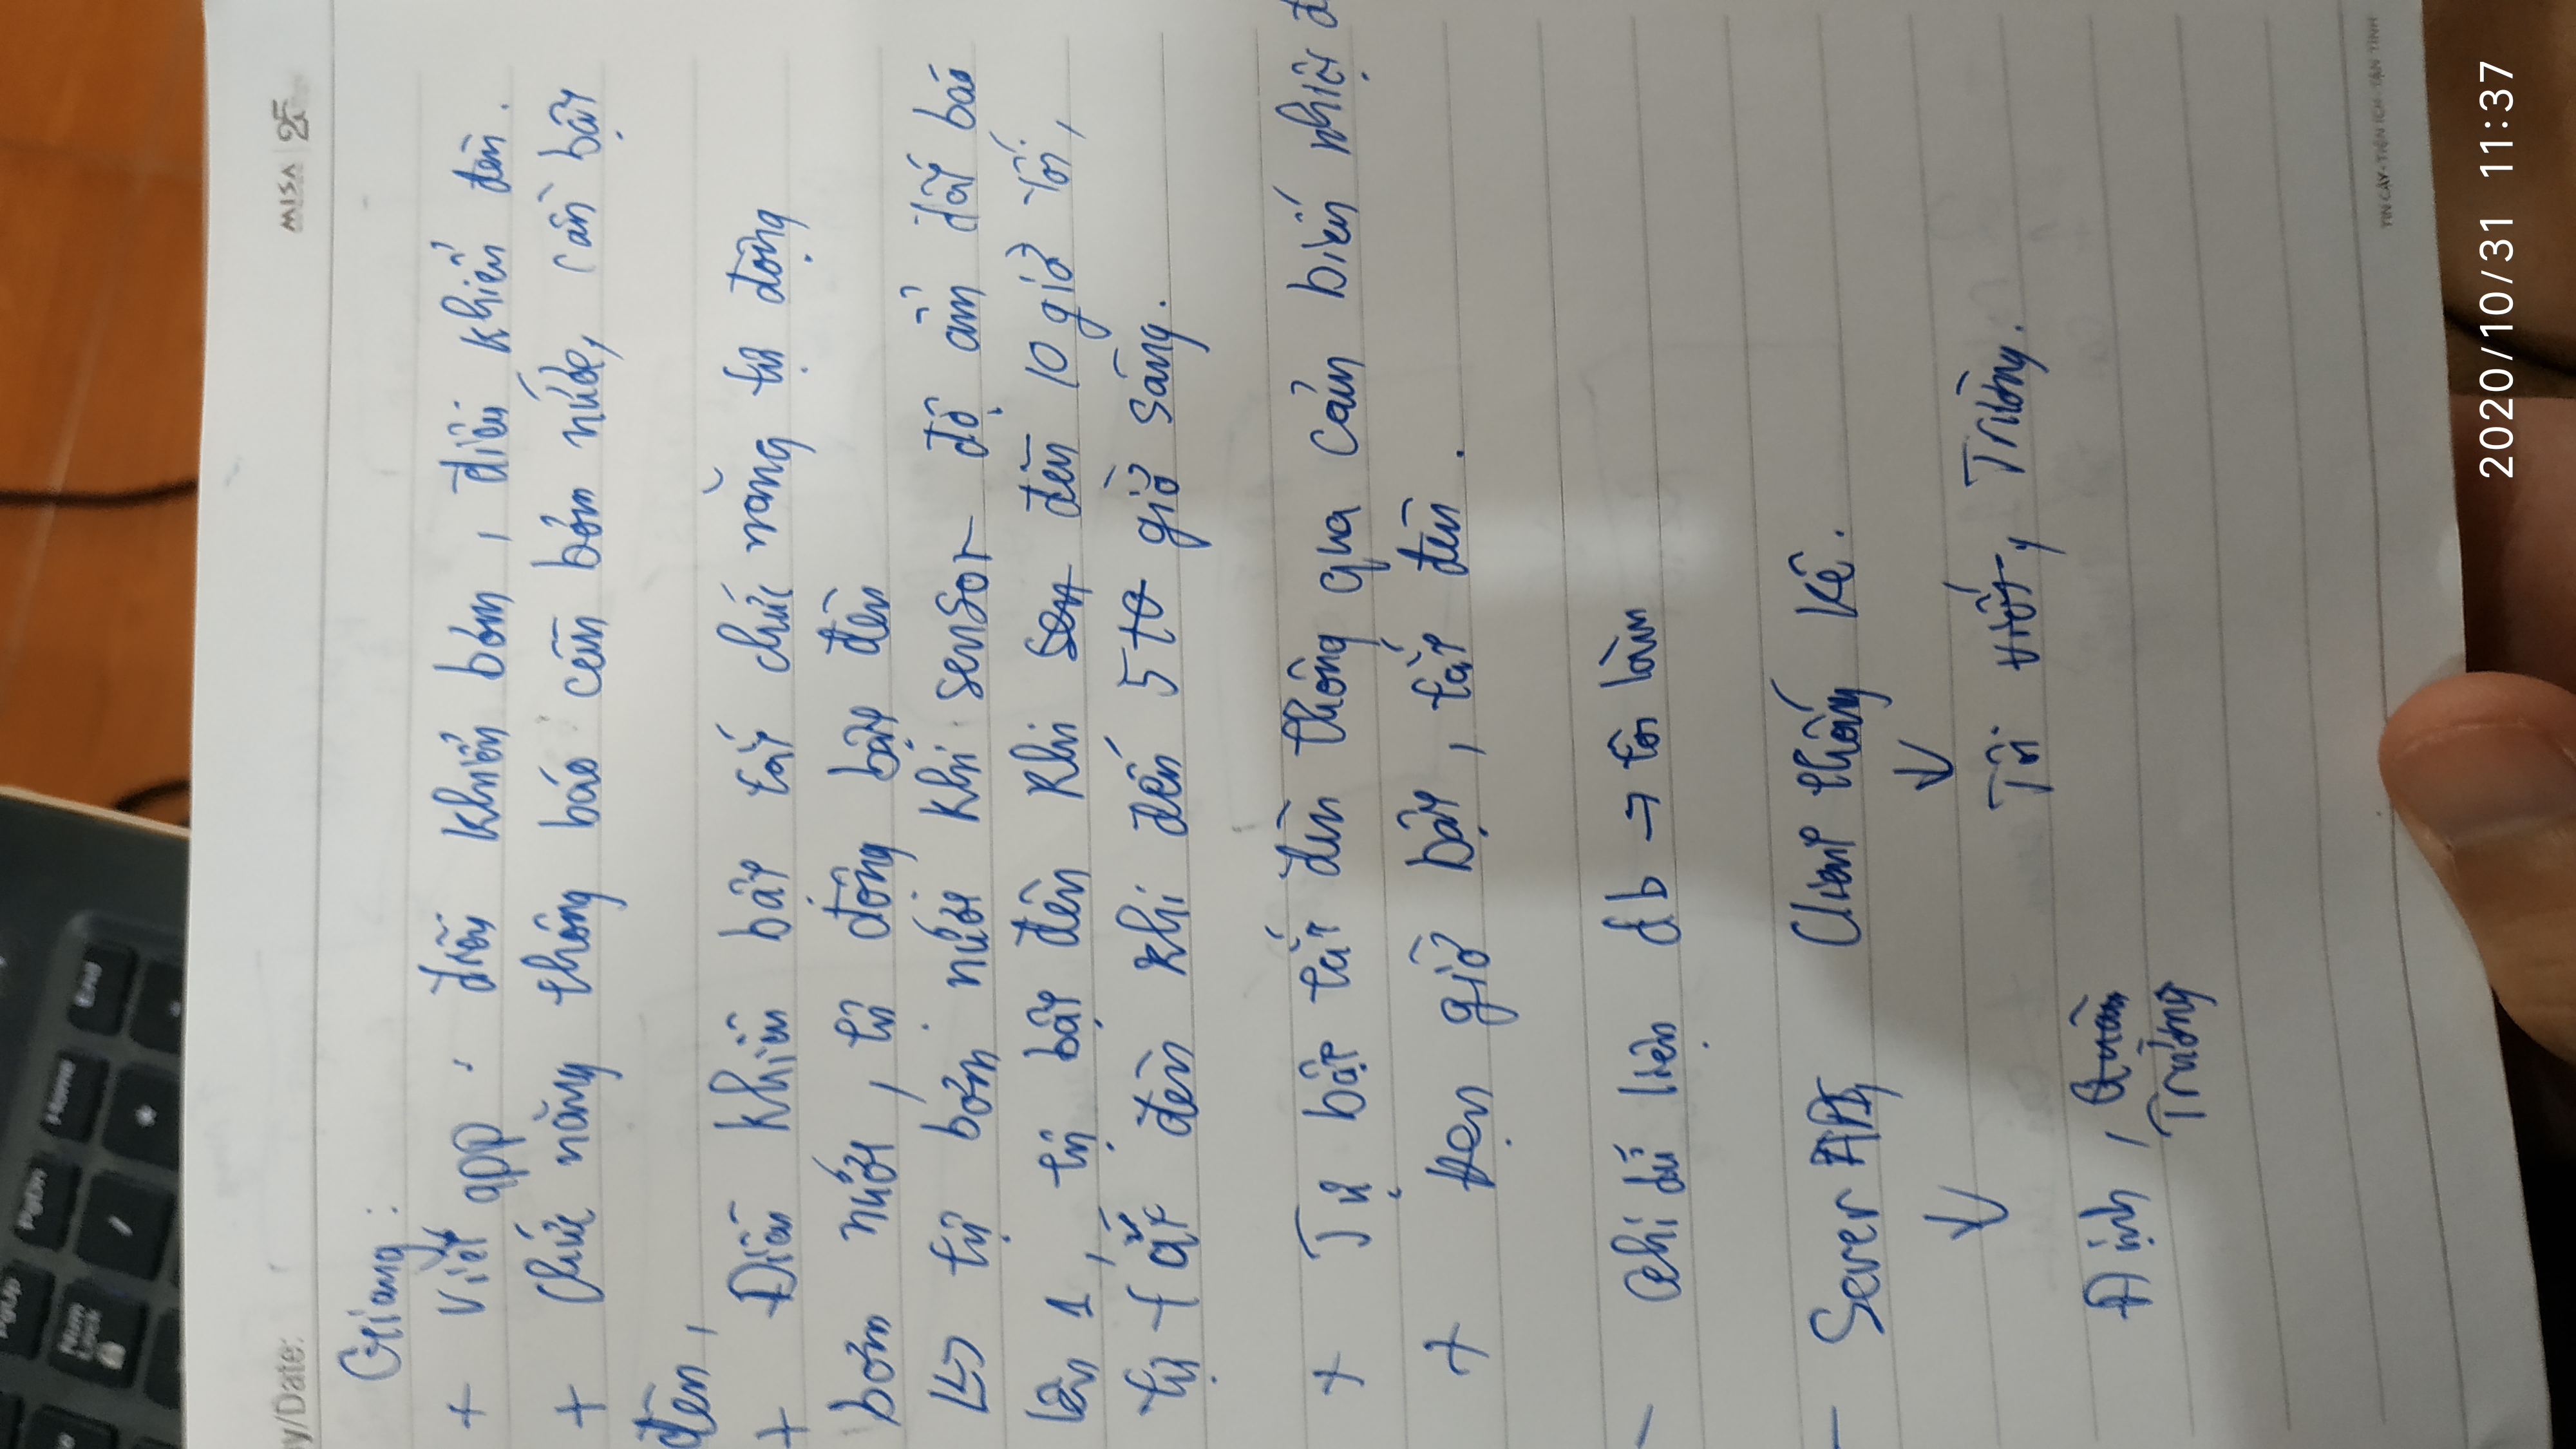 PgUp PgDn Home End
Num Lock / *
y/Date:
MISA 25
Giang:
+ Viết app: điều khiển bơm, điều khiển đèn.
+ Chức năng thông báo cần bơm nước, cần bật
đèn,
+ Điều khiển bật tắt chức năng tự động
bơm nước, tự động bật đèn
tự bơm nước khi sensor độ ẩm đất báo
lên 1, tự bật đèn khi sen đến 10 giờ tối,
tự tắt đèn khi đến 5 10 giờ sáng.
+ Tự bật tắt đèn thông qua cảm biến nhiệt đ
+ Hẹn giờ bật, tắt đèn.
- Ghi dữ liệu db → tôi làm
- Sever API, Client thống kê.
↓ ↓
Tôi viết, Trường.
Định, Quân
Trường
TIN CẬY - TIỆN ÍCH - TẬN TÌNH
2020/10/31 11:37